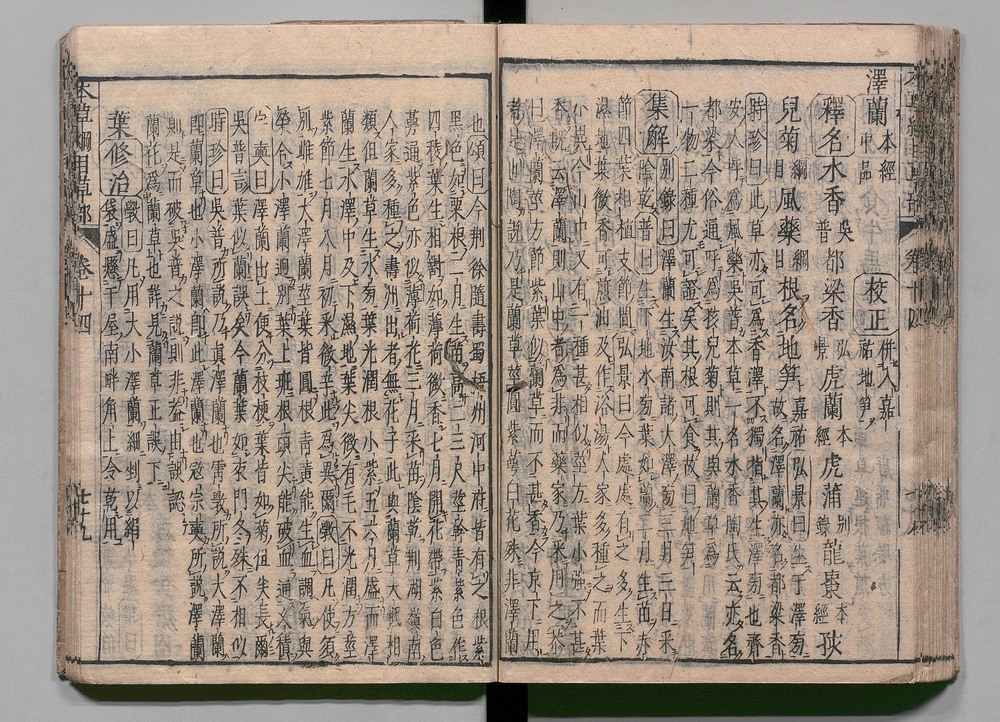 澤蘭 本經中品 校正 併入嘉祐地笋
釋名 水香 吳普 都梁香 弘景 虎蘭 本經 虎蒲 別錄 龍棗 本經 孩
兒菊 綱目 風藥 綱目 根名地笋 嘉祐 弘景曰生于澤旁故名澤蘭亦名都梁香
時珍曰此草亦可爲香澤不獨指其生澤旁也齊
安人呼爲風藥吳普本草一名水香陶氏云亦名
都梁今俗通呼爲孩兒菊則其與蘭草爲
一物二種尤可證矣其根可食故曰地笋
集解 別錄曰澤蘭生汝南諸大澤旁三月三日采
陰乾普曰生下地水旁葉如蘭二月生苗赤
節四葉相植支節間弘景曰今處處有之多生下
濕地葉微香可煎油及作浴湯人家多種之而葉
小異今山中又有一種甚相似莖方葉小强不甚
香既云澤蘭則山中者爲非而藥家乃采用之恭
曰澤蘭莖方節紫葉似蘭草而不甚香今京下用
者是也陶説乃是蘭草莖圓紫萼白花殊非澤蘭
也頌曰今荆徐隨壽蜀梧州河中府皆有之根紫
黑色如粟根二月生苗高二三尺莖幹青紫色作
四稜葉生相對如薄荷微香七月開花帶紫白色
萼通紫色亦似薄荷花三月采苗陰乾荆湖嶺南
人家多種之壽州出者無花子此與蘭草大抵相
類但蘭草生水旁葉光潤根小紫五六月盛而澤
蘭生水澤中及下濕地葉尖微有毛不光潤方莖
紫節七月八月初采微辛此爲異爾斅曰凡使須
別雌雄大澤蘭莖葉皆圓根青黄能生血調氣與
榮合小澤蘭迥別葉上斑根頭尖能破血通久積
宗奭曰澤蘭出土便分枝梗葉皆如菊但尖長爾
吳普言葉似蘭誤矣今蘭葉如麥門冬殊不相似
時珍曰吳普所説乃真澤蘭也雷斅所説大澤蘭
即蘭草也小澤蘭即此澤蘭也寇宗奭所説澤蘭
則是而破吳普之説則非蓋由誤認
蘭花爲蘭草也詳見蘭草正誤下
葉 修治 斅曰凡用大小澤蘭細剉以絹
袋盛懸于屋南畔角上令乾用
本草綱目草部 卷十四 七十九